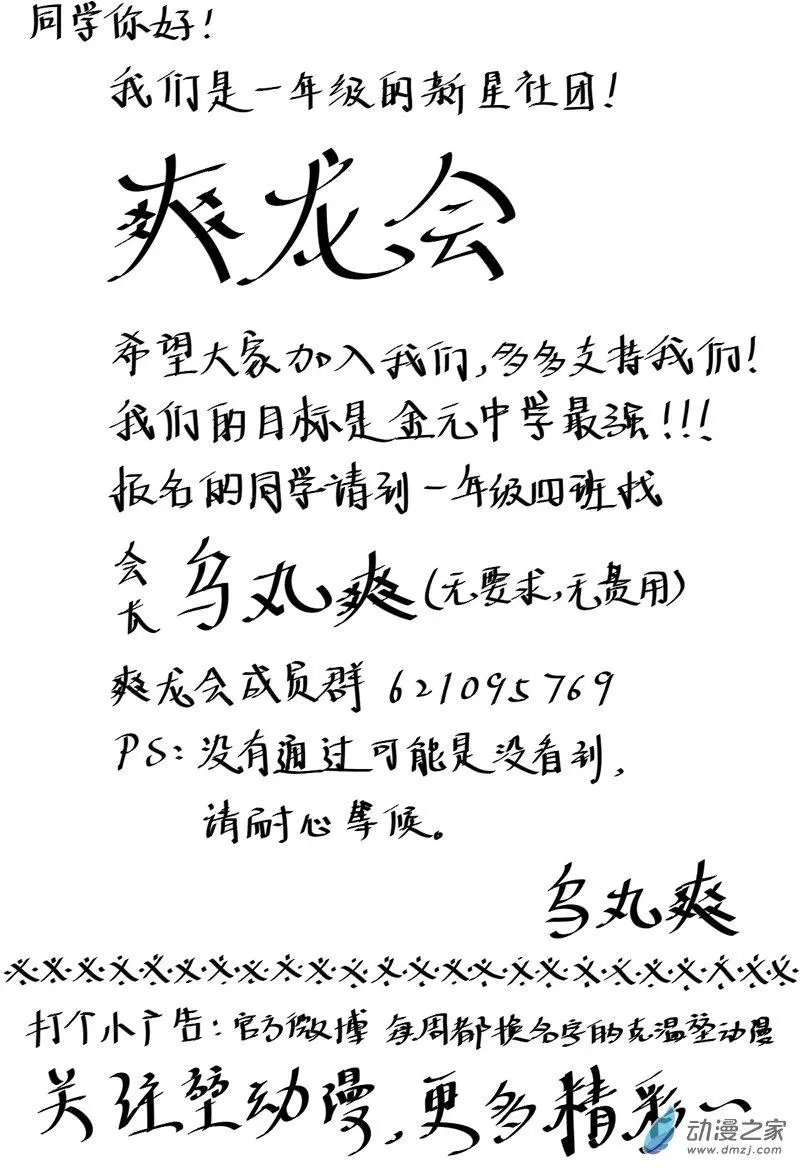 同学你好!
我们是一年级的新星社团!
爽龙会
希望大家加入我们,多多支持我们!
我们的目标是金元中学最强!!!
报名的同学请到一年级四班找
会长 乌丸爽(无要求,无费用)
爽龙会成员群 621095769
PS:没有通过可能是没看到,
请耐心等候。
乌丸爽
打个小广告:官方微博 每周都换名字的克温堃动漫
关注堃动漫,更多精彩~
动漫之家
www.dmzj.com